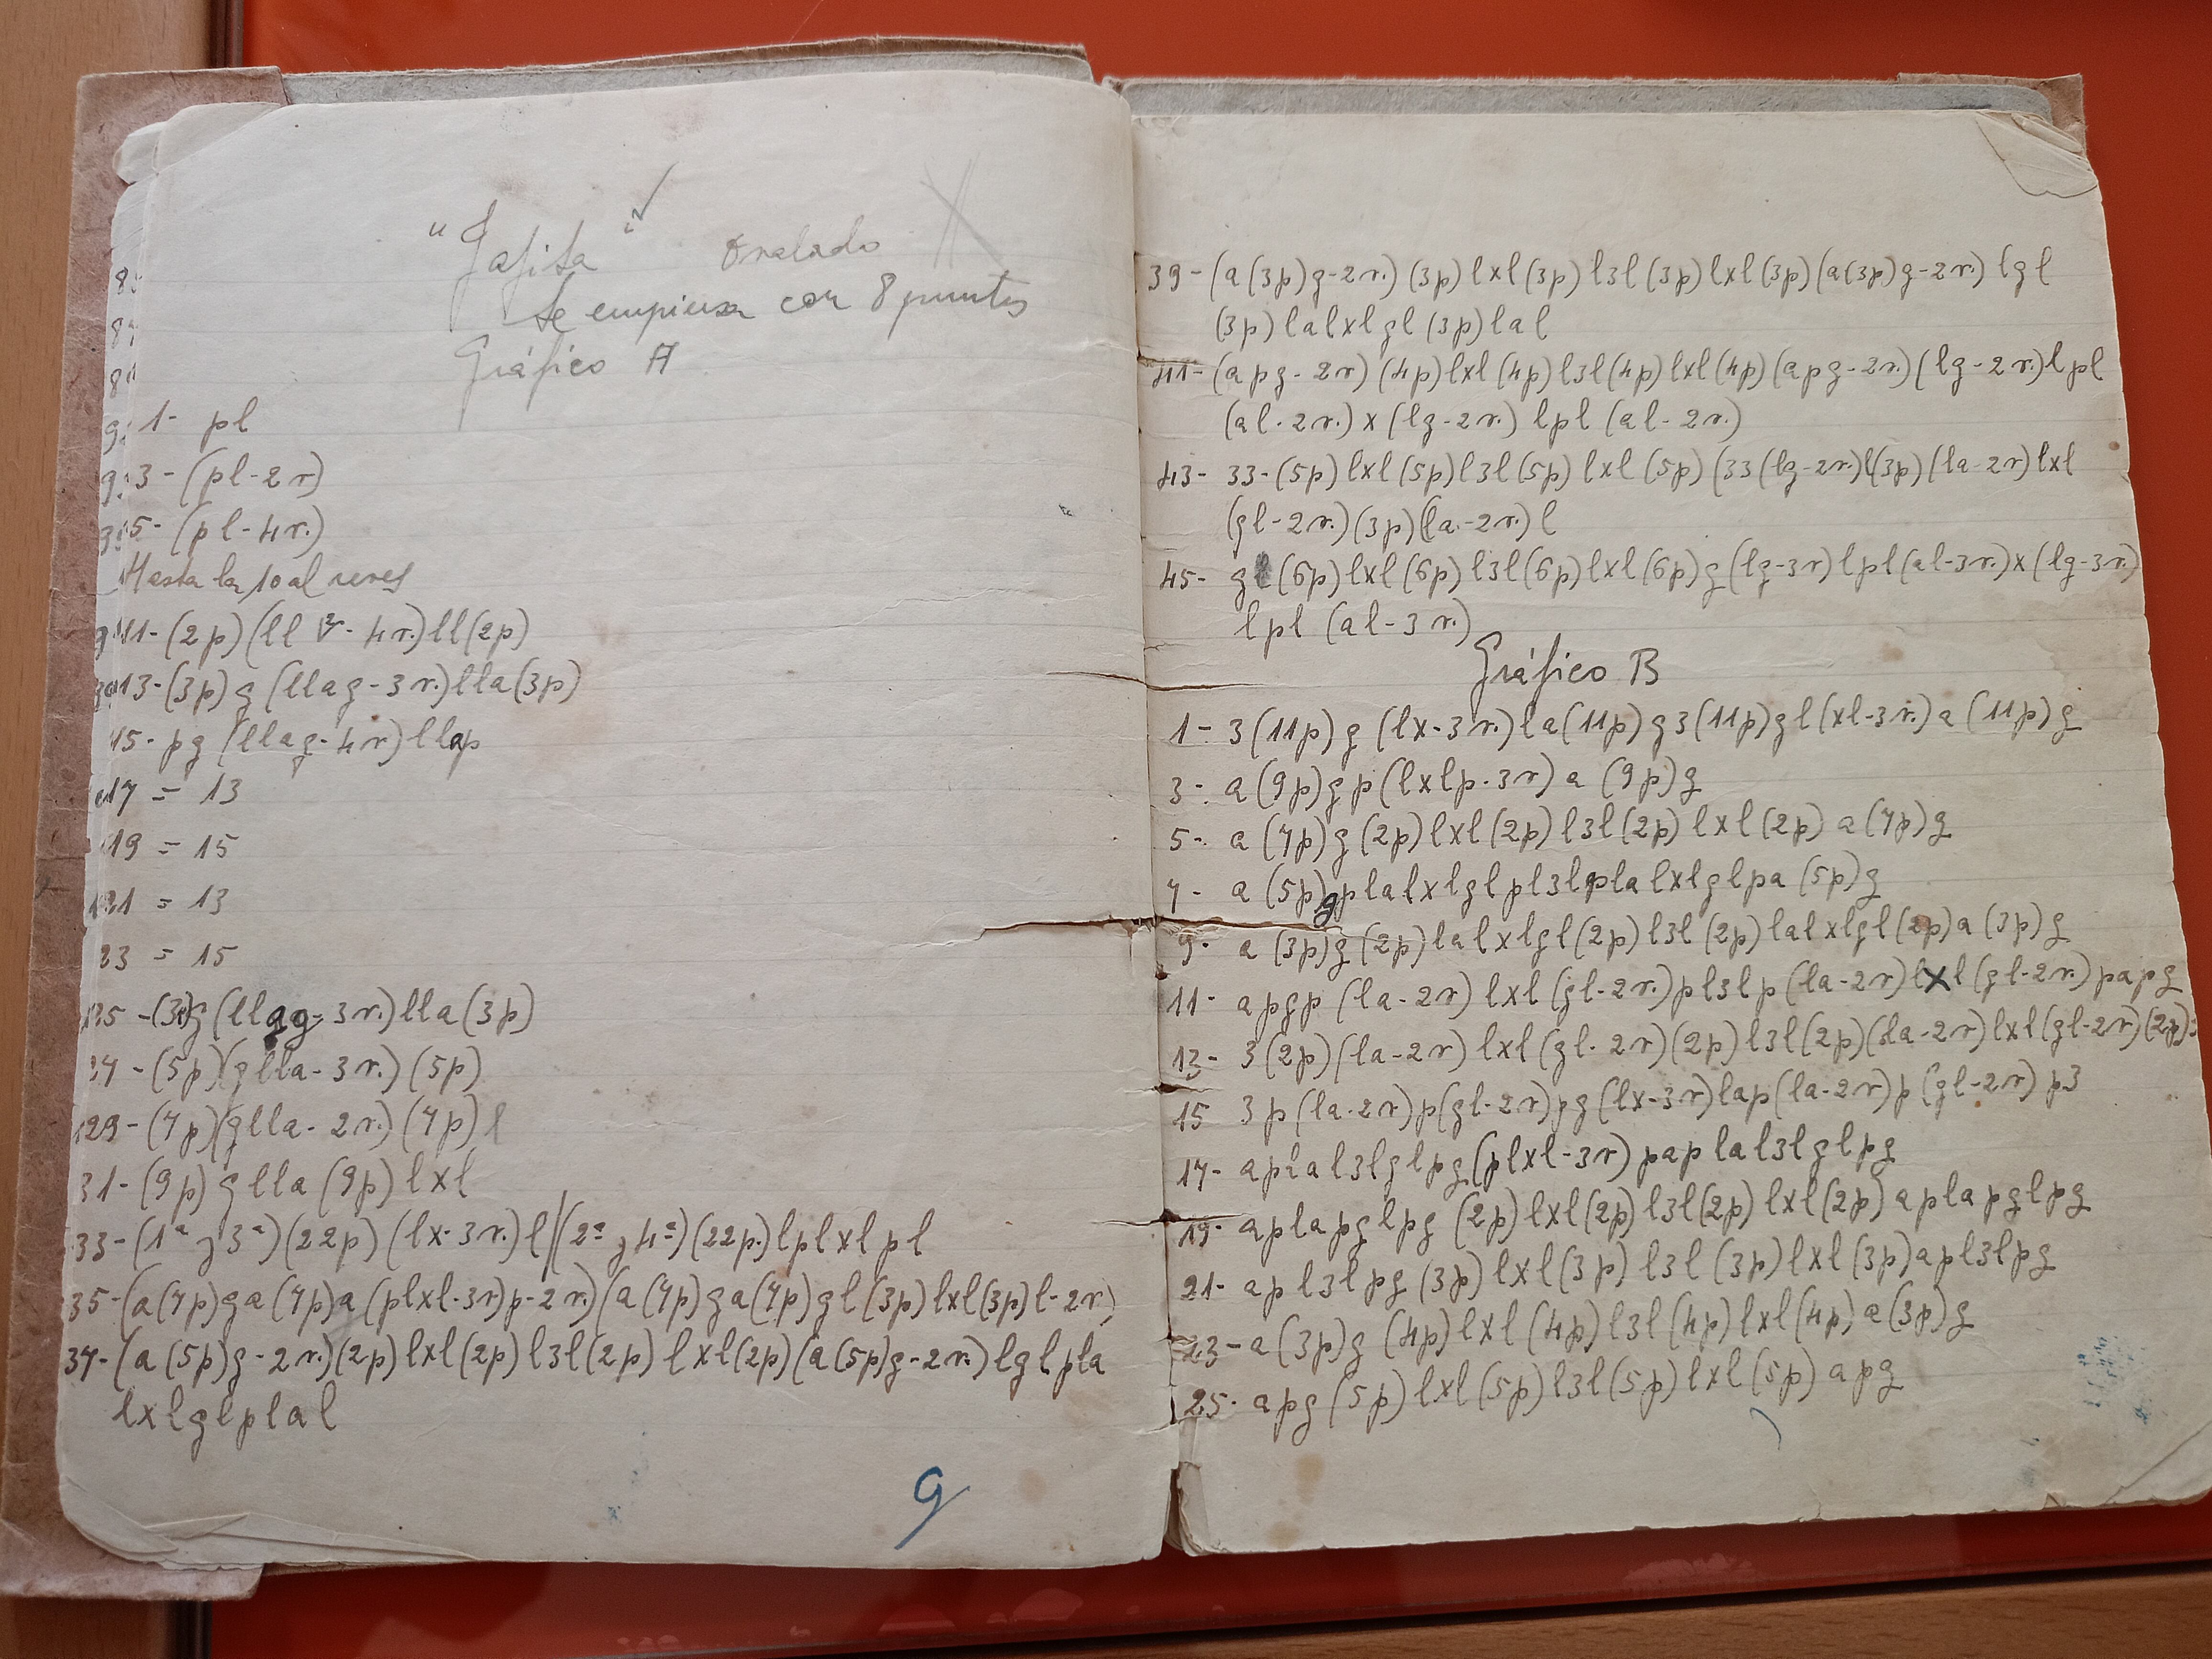 "Jafita" ovalado
Se empieza con 8 puntos
Gráfico A
1- pl
3- (pl-2r)
5- (pl-4r.)
Hasta la 10 al reves
11- (2p)(ll - 4r.)ll(2p)
13- (3p)g(llag-3r.)lla(3p)
15- pg(llag-4r)llap
17 = 13
19 = 15
21 = 13
23 = 15
25 -(3p)g(llag-3r.)lla(3p)
27 -(5p)(glla-3r.)(5p)
29- (7p)(glla-2r.)(7p)l
31- (9p)glla(9p)lxl
33- (1ª y 3ª)(22p)(lx-3r.)l/(2ª y 4ª)(22p.)lplxlpl
35- (a(7p)ga(7p)a(plxl-3r)p-2r.)(a(7p)ga(7p)gl(3p)lxl(3p)l-2r)
37- (a(5p)g-2r.)(2p)lxl(2p)l3l(2p)lxl(2p)(a(5p)g-2r.)lglpla
lxlglplal
9
39- (a(3p)g-2r.)(3p)lxl(3p)l3l(3p)lxl(3p)(a(3p)g-2r.)lgl
(3p)lalxlgl(3p)lal
41- (apg-2r)(4p)lxl(4p)l3l(4p)lxl(4p)(apg-2r.)(lg-2r.)lpl
(al-2r.)x(lg-2r.)lpl(al-2r.)
43- 33-(5p)lxl(5p)l3l(5p)lxl(5p)(33(lg-2r.)l(3p)(la-2r)lxl
(gl-2r.)(3p)(la-2r.)l
45- g(6p)lxl(6p)l3l(6p)lxl(6p)g(lg-3r)lpl(al-3r.)x(lg-3r.)
lpl(al-3r.)
Gráfico B
1- 3(11p)g(lx-3r.)la(11p)g3(11p)gl(xl-3r.)a(11p)g
3- a(9p)gp(lxlp-3r)a(9p)g
5- a(7p)g(2p)lxl(2p)l3l(2p)lxl(2p)a(7p)g
7- a(5p)gplalxlglpl3lplalxlglpa(5p)g
9- a(3p)g(2p)lalxlgl(2p)l3l(2p)lalxlgl(2p)a(3p)g
11- apgp(la-2r)lxl(gl-2r.)pl3lp(la-2r)lxl(gl-2r.)papg
13- 3(2p)(la-2r)lxl(gl-2r)(2p)l3l(2p)(la-2r)lxl(gl-2r)(2p)3
15 3p(la-2r)p(gl-2r)pg(lx-3r)lap(la-2r)p(gl-2r)p3
17- aplal3lglpg(plxl-3r)paplal3lglpg
19- aplapglpg(2p)lxl(2p)l3l(2p)lxl(2p)aplapglpg
21- apl3lpg(3p)lxl(3p)l3l(3p)lxl(3p)apl3lpg
23- a(3p)g(4p)lxl(4p)l3l(4p)lxl(4p)a(3p)g
25- apg(5p)lxl(5p)l3l(5p)lxl(5p)apg